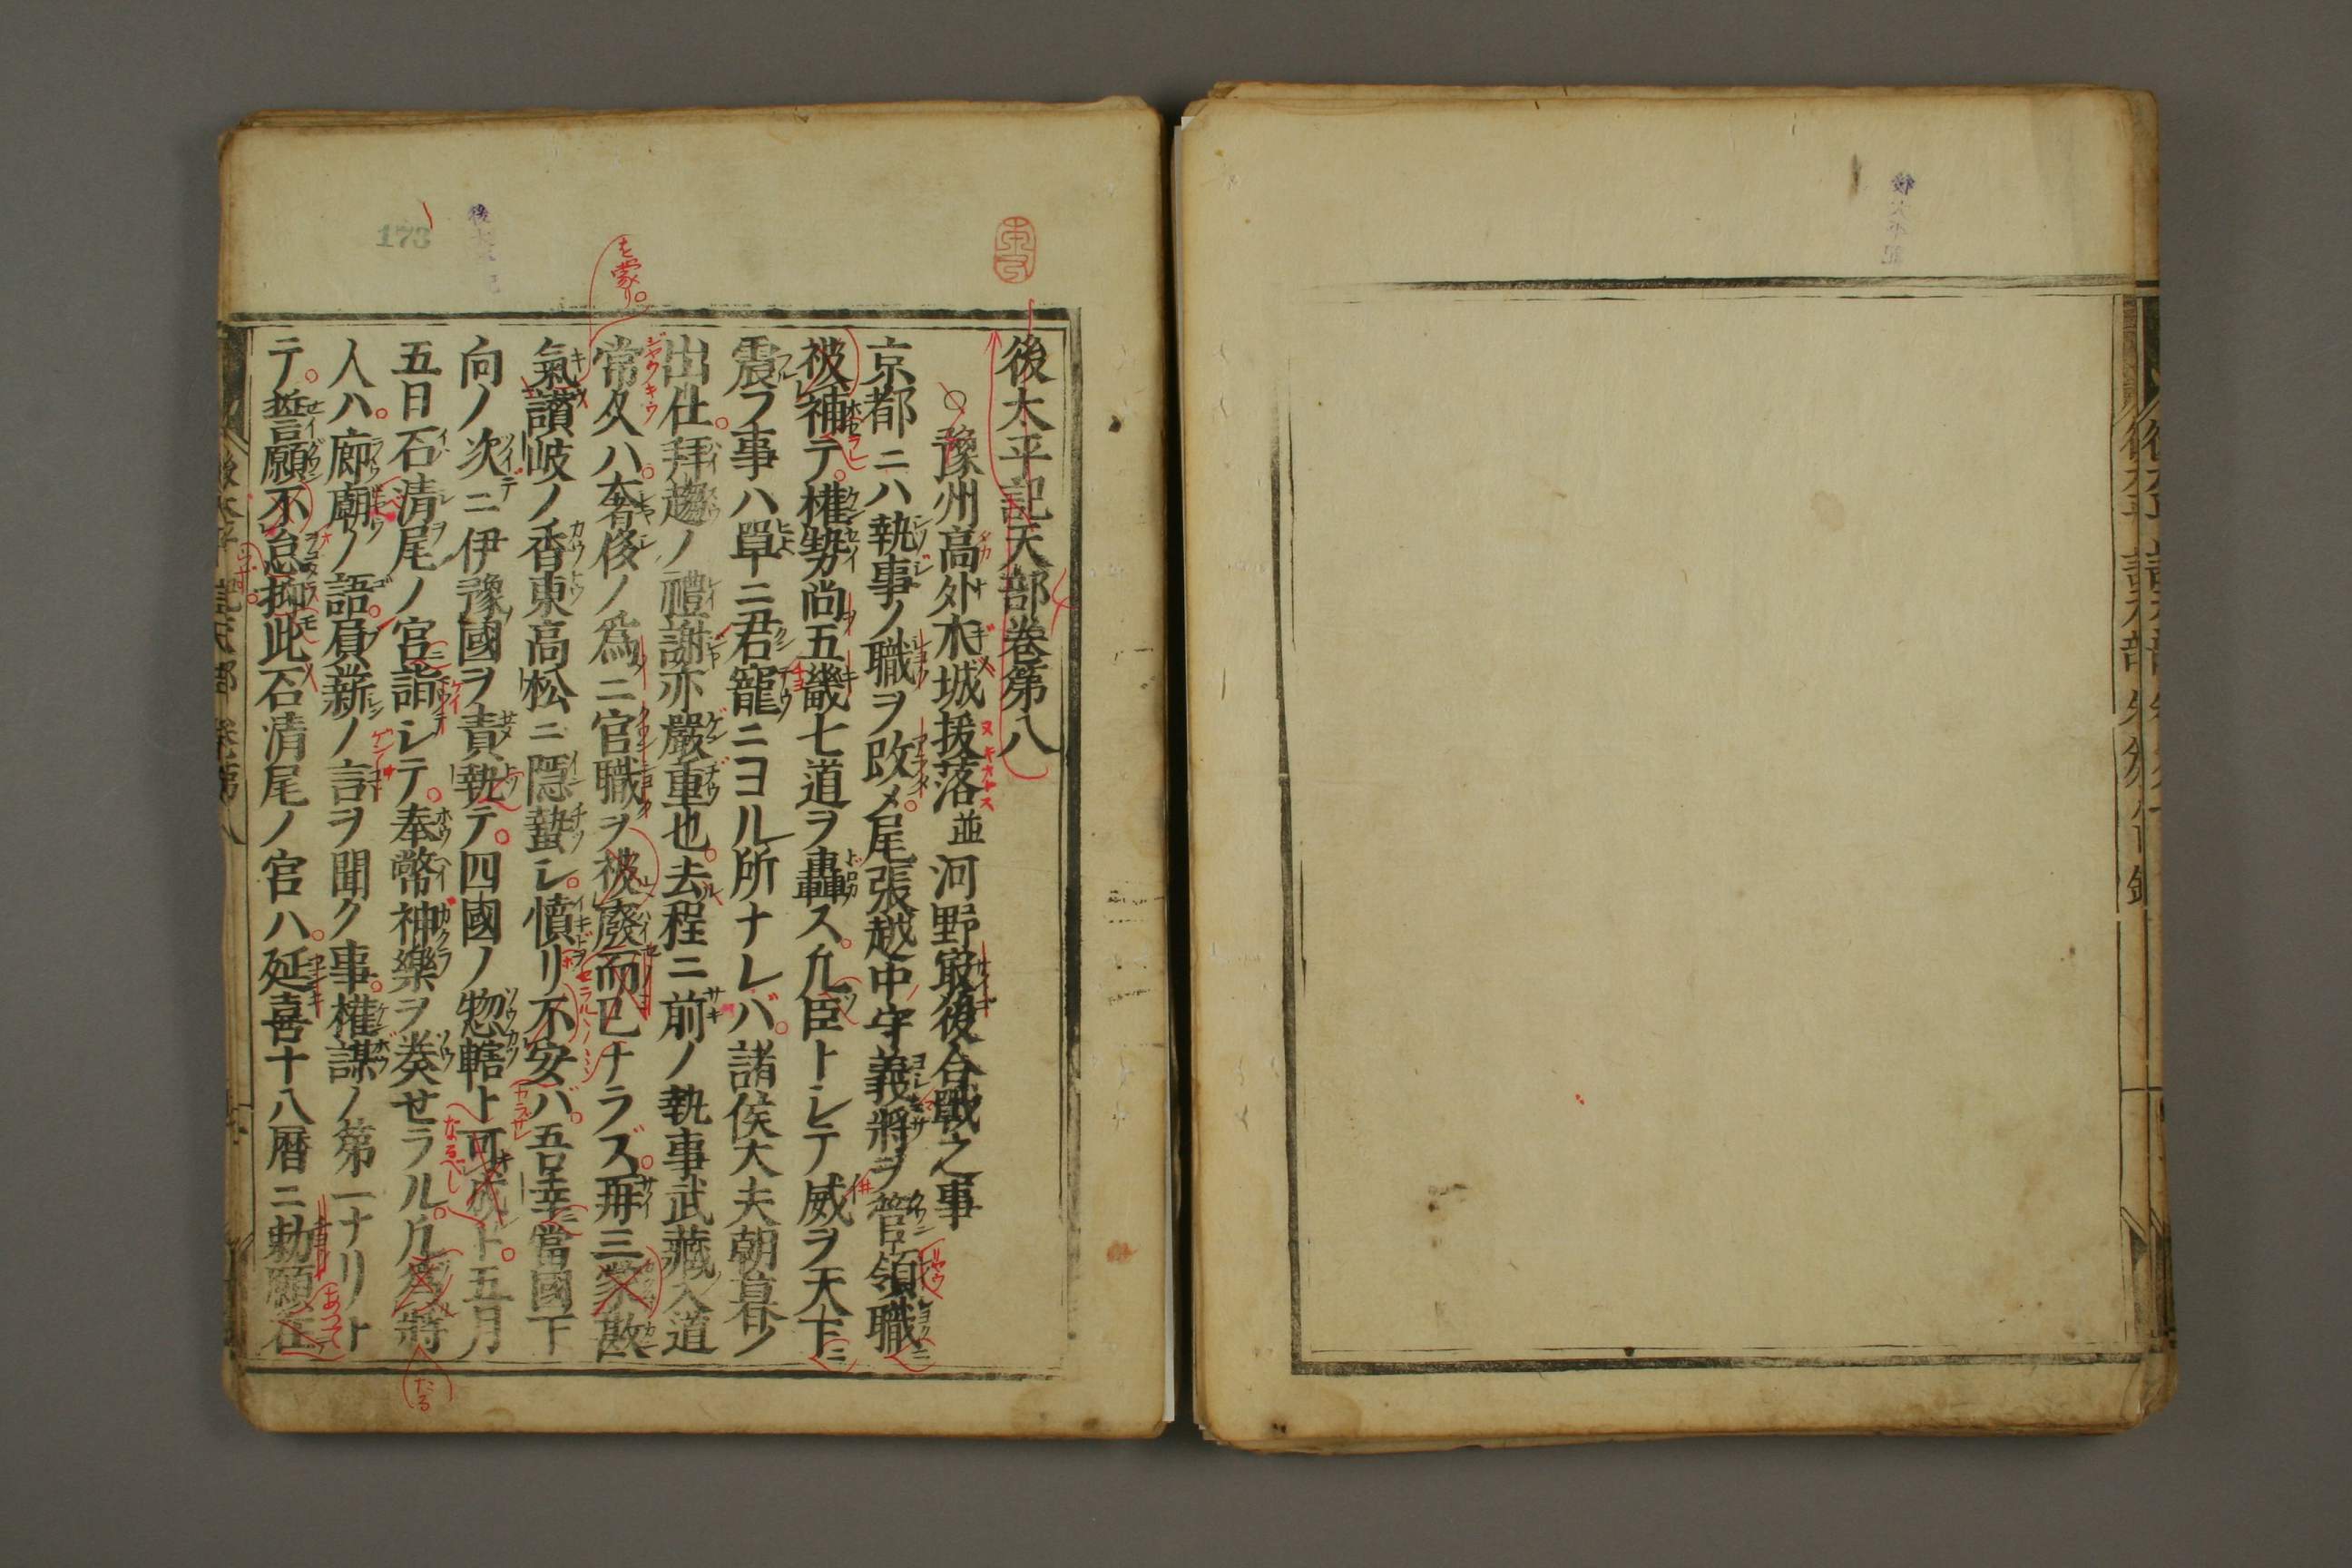 後太平記天部巻第八
豫州高外木城援落並河野最後合戰之事
京都ニハ執事ノ職ヲ改メ尾張越中守義將ヲ管領職ニ
被補テ權勢尚五畿七道ヲ轟ス凡臣トシテ威ヲ天下ニ
震フ事ハ單ニ君寵ニヨル所ナレバ諸侯大夫朝暮ノ
出仕拜趨ノ禮謝亦嚴重也去程ニ前ノ執事武藏入道
常久ハ奢侈ノ爲ニ官職ヲ被廢而已ナラズ再三蒙勘
氣讃岐ノ香東高松ニ隱蟄シ憤リ不安バ吾幸當國下
向ノ次ニ伊豫國ヲ責執テ四國ノ惣轄ト可成ト五月
五日石清尾ノ宮詣シテ奉幣神樂ヲ奏せラル凡爲將
人ハ廊廟ノ語負薪ノ言ヲ聞ク事權謀ノ第一ナリト
テ誓願不怠抑此石清尾ノ官ハ延喜十八暦ニ勅願在
を蒙り。
なるべし
たる
あつて
173